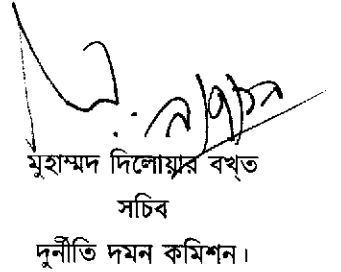 মুহাম্মদ দিলোয়ার বখ্‌ত
সচিব
দুর্নীতি দমন কমিশন।